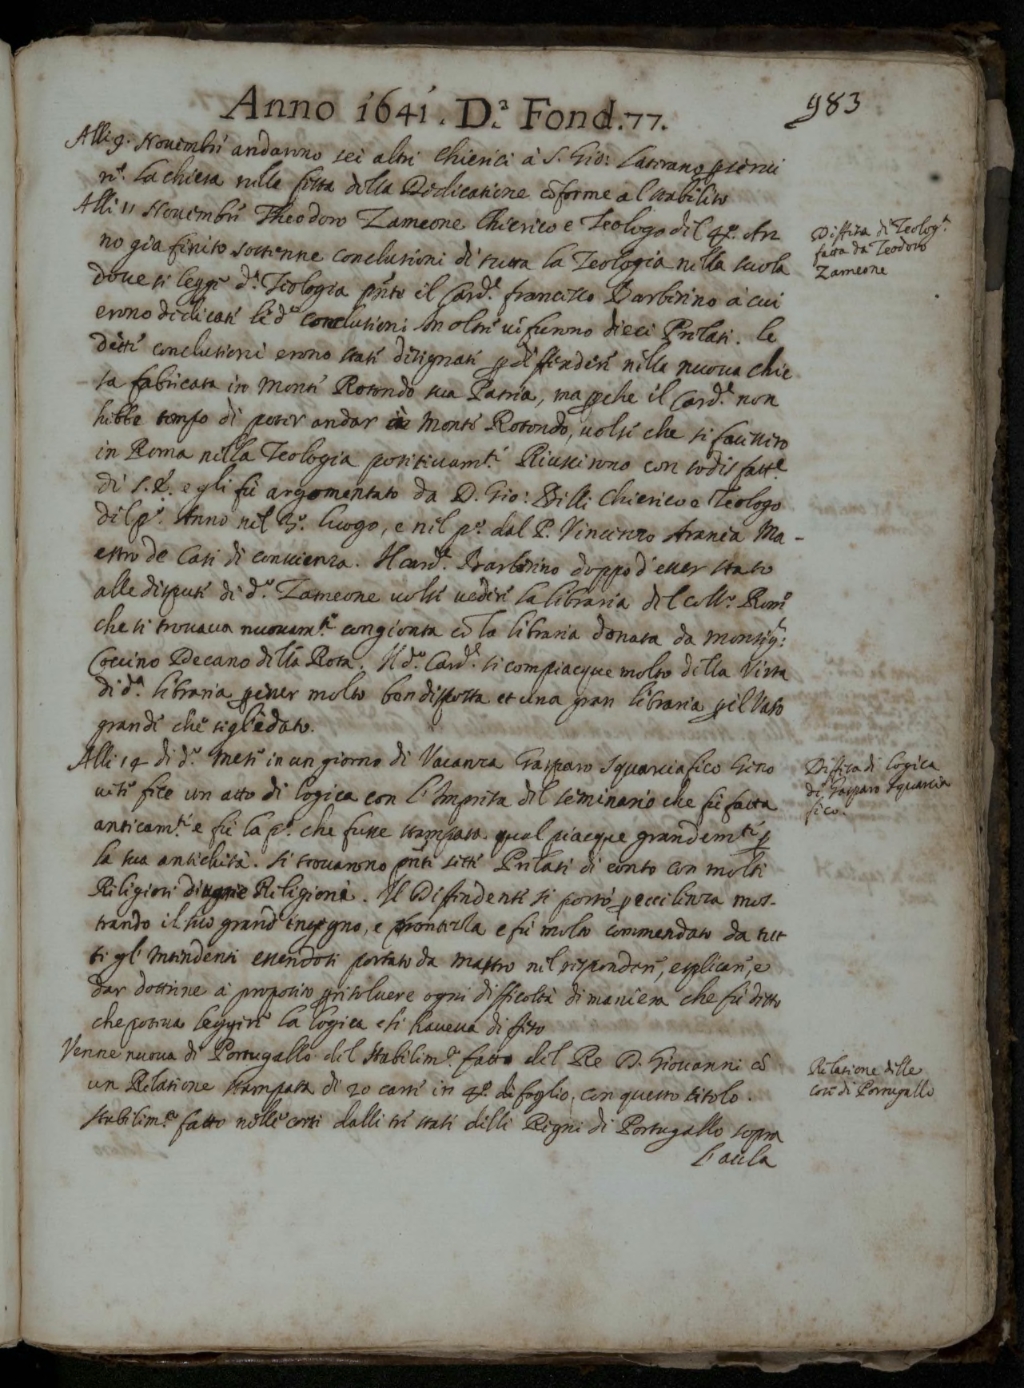 Anno 1641. D.ª Fond. 77.
983
Alli 9. Novembri andarono sei altri Chierici à S. Gio: Laterano p servi
r.e la chiesa nella festa della Dedicatione cōforme al stabilito
Alli 11 Novembri Theodoro Zameone Chierico e Teologo del 4º. An
no già finito sostenne conclusioni di tutta la Teologia nella scuola
dove si legge d.ª Teologia pñte il Card.e Francesco Barberino à cui
erono dedicati le d.e conclusioni in oltre vi furono dieci Prelati. le
dette conclusioni erono stati disegnati p diffenderi nella nuova chie
sa fabricata in Monte Rotondo sua Patria, ma pche il Card.e non
hebbe tempo di poter andar in Monte Rotondo, volse che si facessero
in Roma nella Teologia positivam.te Riuscirono con sodisfatt.e
di S. E. e gli fù argomentato da D. Gio: Chierico e Teologo
del p.º Anno nel luogo, e nel p.º dal P. Vincenzo Arania Ma-
estro de Casi di conscienza. Il card.e Barberino doppo d'esser stato
alle dispute di d.º Zameone volse vedere la libraria del Coll.º Rom.º
che si trovava nuovam.te congionta cō la libraria donata da Monsig.r:
Coccino Decano della Rota. Il d.º Card.e si compiacque molto della Vista
di d.ª libraria p esser molto ben disposta et una gran libraria p il Vaso
grande che
Alli 14 di d.º mese in un giorno di Vacanza Gasparo Squarciafico Geno
vese fece un atto di logica con l'Impresa del seminario che fù fatta
anticam.te e fù la p.ª che fusse stampata qual piacque grandem.te p
la sua antichità. Si trovarono pñti sette Prelati di conto con molti
Religiosi di Religione. Il Diffendente si portò p eccellenza mos-
trando il suo grand' ingegno, e prontezza e fù molto commendato da tut
ti gl' Intendenti essendosi portato da mastro nel rispondere, esplicare, e
dar dottrine à proposito p risolvere ogni difficoltà di maniera che fù detto
che poteva leggere la logica che haveva difeso
Venne nuova di Portugallo del stabilim.to fatto del Re D. Giovanni cō
un Relatione stampata di 20 carte in 4º. di foglio, con questo titolo.
Stabilim.to fatto nelle corti dalli tre stati delli Regni di Portugallo sopra
l'accla
Diffesa di Teolog.ª
fatta da Teodoro
Zameone
Diffesa di Logica
di Gasparo Squarcia
fico.
Relatione delle
Corti di Portugallo